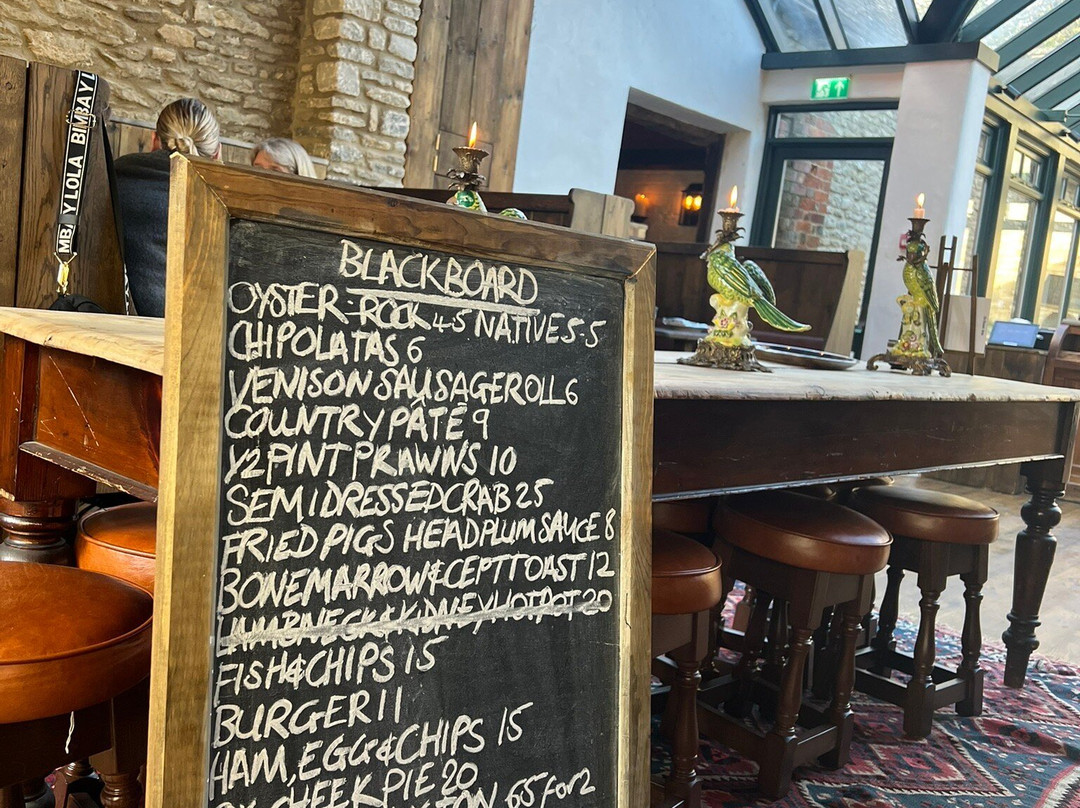 BIMBA Y LOLA BIMBAY L
BLACKBOARD
OYSTER-ROCK 4-5 NATIVES 5-5
CHIPOLATAS 6
VENISON SAUSAGEROLL 6
COUNTRY PÂTÉ 9
1/2 PINT PRAWNS 10
SEMI DRESSED CRAB 25
FRIED PIGS HEAD PLUM SAUCE 8
BONEMARROW & CEPT TOAST 12
LAMB NECK & KIDNEY HOTPOT 20
FISH & CHIPS 15
BURGER 11
HAM, EGG & CHIPS 15
CHEEK PIE 20
65 FOR 2